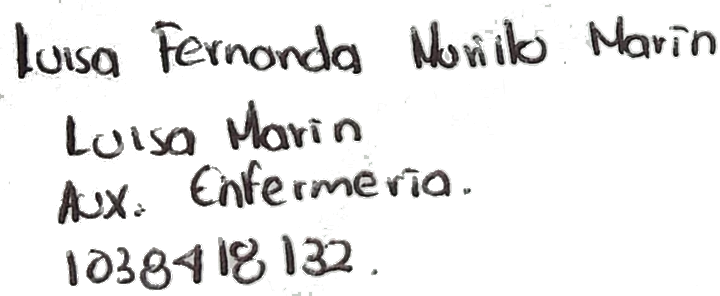 Luisa Fernanda Murillo Marin
Luisa Marin
Aux. Enfermeria.
1038418132.